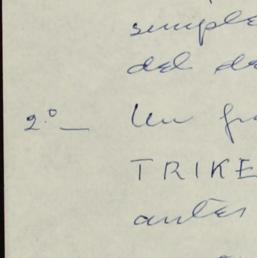 simple
del de
2.º — Un fra
TRIKE
antes